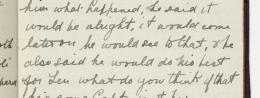 him what happened, he said it
would be alright, it would come
later on, he would see to that, & he
also said he would do his best
for Len what do you think of that